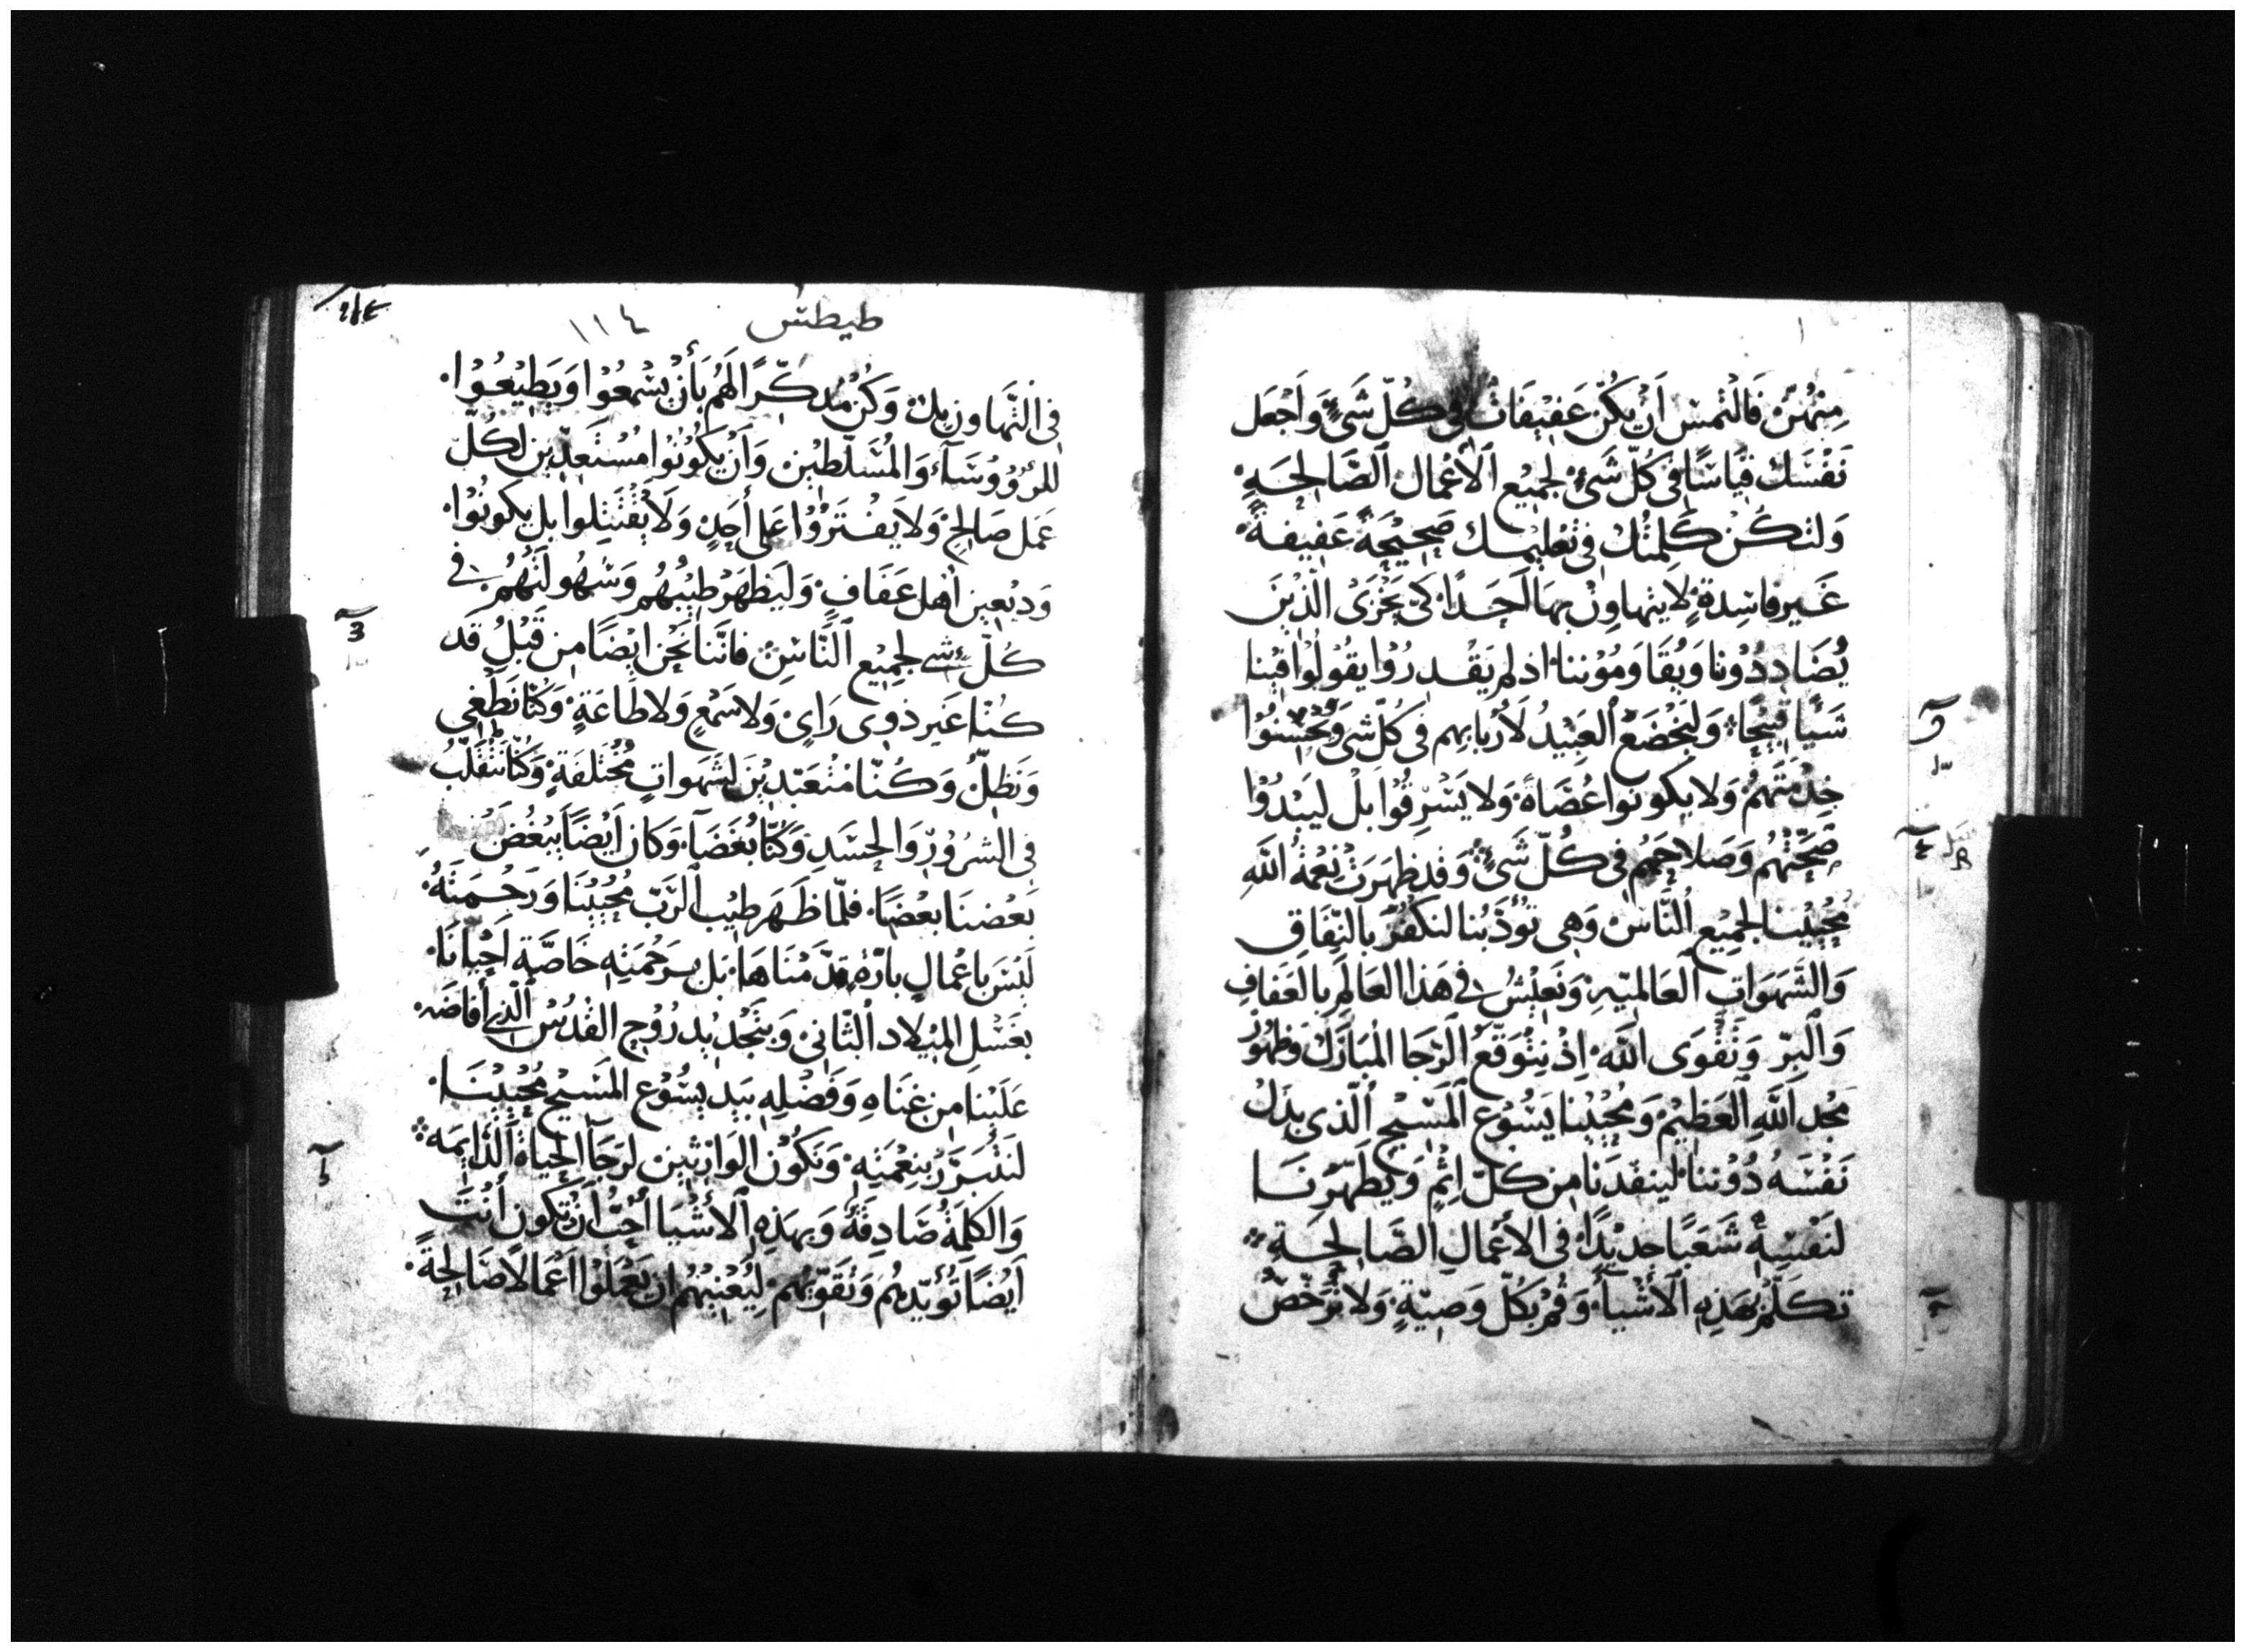 مِنْهُنَّ فَالْتَمس اَنْ يكُنّ عَفِيفَاتٌ فِي كُلّ شَيٍ وَاجْعَل
نَفْسَك قِيَاسًا فى كُلّ شَىْءٍ لجميْع ٱلاَعْمال ٱلصَّالحَةِ
وَلتكُنْ كَلِمتُك فِي تعْلِيمك صَحِيْحَةً عَفِيفةً
غَير فاسِدةٍ لا يتهاوِنُ بهَا اَحَدًا كىّ يَخْزَىْ الّذِيْنَ
يُضَادِدُوْنا وَيُقَاوَمُوْننا اذ لم يَقْدرُوْا يقُولُوْا فِيْنا
شَيًا قبِيْحًا وَلَيَخْضَعْ ٱلعَبِيْدُ لاَرْبابِهم فى كُلّ شى وَيُحْسِنُوْا
خِدْمَتَهمُ وَلا يكونوا عُصَاةً وَلا يَسْرِقُوْا بلْ ليَبْدُوْا
صِحّتُهمُ وَصَلاحَهمُ في كُلّ شَىٍ وَقد ظهَرَتْ نعْمَةُ اللّهِ
مُحْيِيْنا لجمِيْع ٱلنَّاسْ وَهِى تؤُذّبُنا لنكْفُرَ بالنّفَاقِ
وَالشَهَوَاتِ ٱلعَالميّهِ وَنَعِيْشُ فى هَذا العَالَمِ بالعَفافِ
وَٱلبِرّ وَتَقْوَى اللّه اِذْ نتَوَقّعُ ٱلرّجَا المبَارَك وَظهُوْر
مَجْد اَللّهِ ٱلعَظِيْمْ وَمُحْيِيْنا يَسُوْع ٱلمَسِيْح ٱلّذى بذل
نَفْسَهُ دُوْننا لينقذنا مِن كلّ اِثْمٍ وَيُطَهّرنَا
لنَفْسِهْ شَعَبًا جدِيْدًا فى الاَعْمالِ الصَّالحَةِ
تكلّمْ بهَذِهِ ٱلاَشْيآ وَقُمْ بكُلّ وَصِيّةٍ وَلا تُرَخّصْ
طيطس ١١٤
فى التّهَاون بك وَكُنْ مُدكّرًا لَهمُ بأَنْ يسْمعُوْا وَيَطِيْعُوْا
للرُوُوسَآء وَالمُسَلّطِيْن وَاَنْ يكُوْنُوْا مُسْتَعدّيْن لكُلّ
عَمَل صَالحٍ وَلا يفْتَرُوْا عَلى أحَدٍ وَلا يقْتَتِلوا بل يكونُوْا
وَدِيْعِيْن اَهل عَفَافٍ وَلَيَظهَرْ طِيْبُهُم وَسَهُولَتُهُمُ فى
كُلّ شىءٍ لجمِيْع ٱلنَّاسِ فانَّنا نَحْن ايْضًا مِن قَبْلُ قد
كُنّا غَير ذوى رَاىٍ وَلا سَمْعٍ وَلا طَاعَةٍ وَكُنّا نَطْغى
وَنَظلّ وَكُنّا مُتعَبّدِيْنَ لشهَواتٍ مُخْتَلفَةٍ وَكُنّا نَتَقَلّبُ
فى الشرُوْرِ وَالحسَدِ وَكُنّا بُغَضَآ وَكان اَيْضًا يَبْغُضُ
بَعْضنَا بعْضًا فلمّا ظَهَر طِيْب ٱلرّبّ مُحْيِيْنَا وَرَحْمَتَهُ
لَيْسَ باعْمالٍ بارّةٍ قدّمْنَاهَا بل برَحْمَتِهِ خَاصّةً اَحْيانَا
بغَسْلِ المِيْلاد ٱلثّانى وَبتَجْدِيْد رُوْح القُدُسْ ٱلّذى أفاضَهُ
عَلَيْنا مِن غِنَاهِ وَفَضْلِهِ بيَد يسُوْع المَسِيْح مُحْيِيْنَا
لنَتبَرّرُ بنِعْمَتِهِ وَنَكُوْن الوَارِثِيْن لرَجَآ الحيَاةْ ٱلدّايمَه
وَالكلِمَةُ صَادِقَةٌ وَبهَذِهِ ٱلاَشْيَا أُحِبُّ اَنْ تكون أنْتَ
اَيْضًا تُؤيّدهُم وَتُقَوّيْهُم لِيُعْنِيْهُمُ ان يَعْمَلوْا اَعْمالاً صَالِحَةً